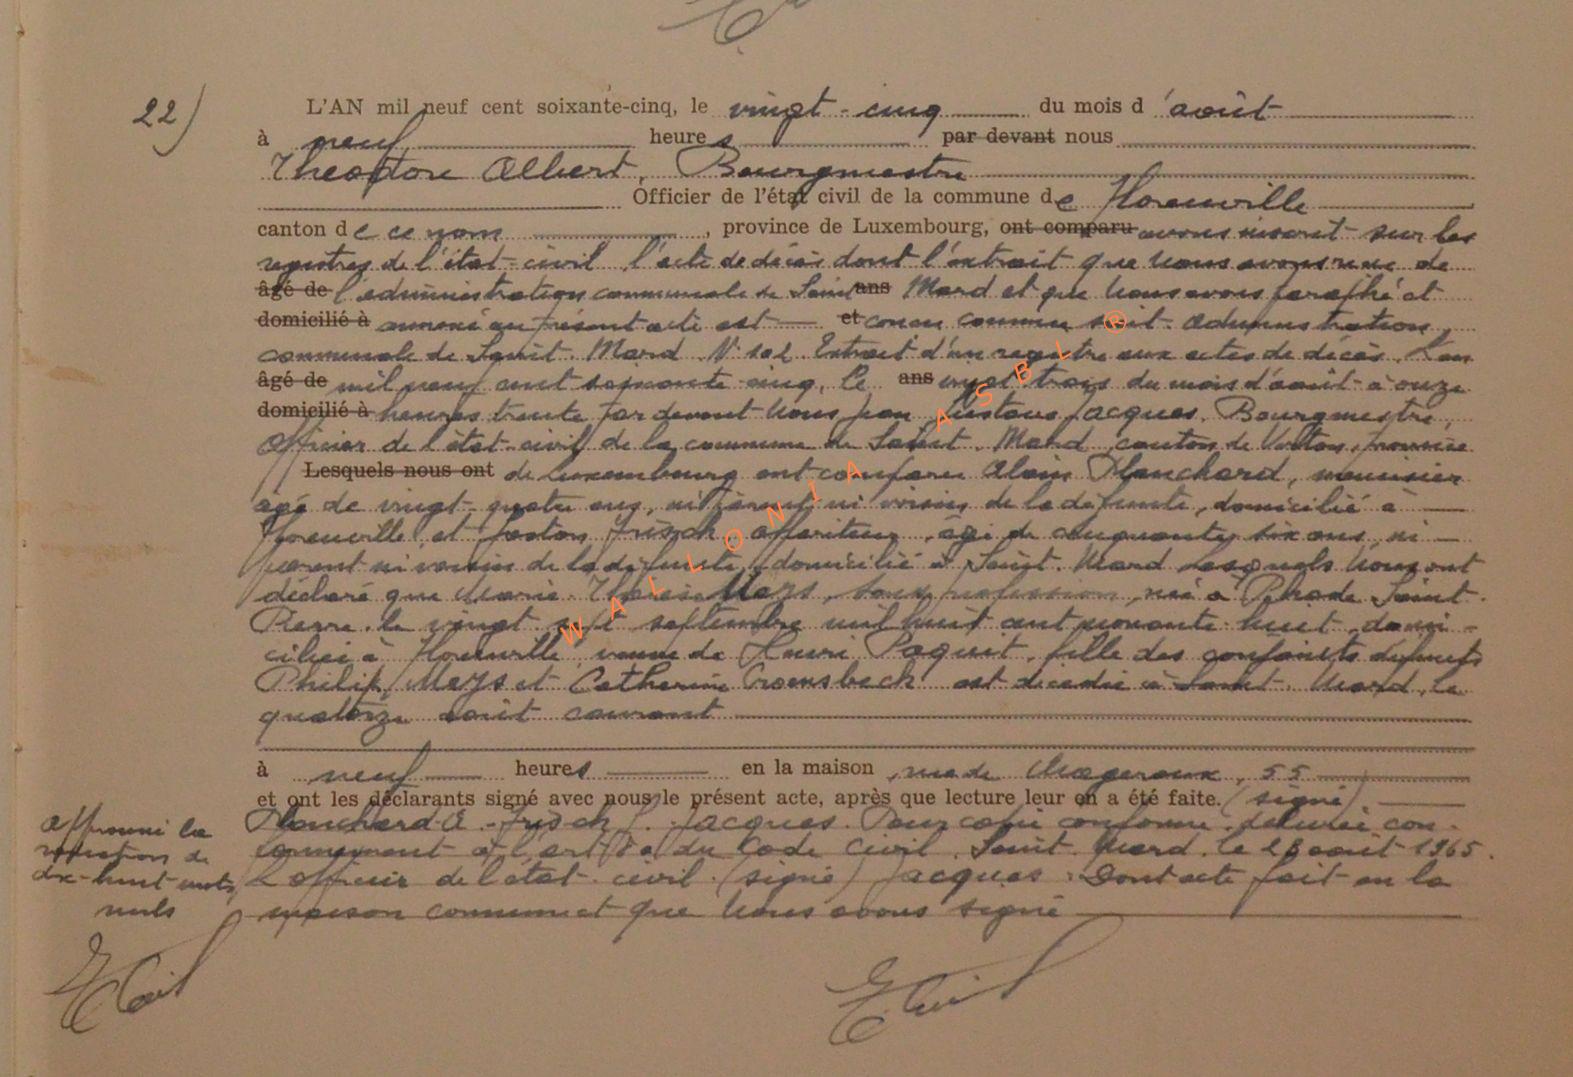 22)
L'AN mil neuf cent soixante-cinq, le vingt-cinq du mois d'août
à neuf heures par devant nous
Théodore Albert, Bourgmestre
Officier de l'état civil de la commune de Florenville
canton de ce nom, province de Luxembourg, ont comparu avons inscrit sur les
registres de l'état-civil l'acte de décès dont l'extrait que nous avons reçu de
âgé de l'administration communale de Saint ans Mard et que nous avons paraphé et
domicilié à annexé au présent acte est et conçu comme suit. Administration
communale de Saint-Mard N° Extrait d'un registre aux actes de décès. L'an
âgé de mil neuf cent soixante-cinq, le ans vingt trois du mois d'août à onze
domicilié à heures trente par devant nous Jean Gustave Jacques, Bourgmestre,
officier de l'état-civil de la commune de Saint-Mard, canton de Virton, province
Lesquels nous ont de Luxembourg ont comparu Alain Planchard, menuisier
âgé de vingt-quatre ans, ni parent ni voisin de la défunte, domicilié à
Florenville et Gaston Frisch, appariteur, âgé de cinquante six ans, ni
parent ni voisin de la défunte, domicilié à Saint-Mard lesquels nous ont
déclaré que Marie-Thérèse Mays, sans profession, née à Rhode-Saint-
Pierre, le vingt sept septembre mil huit cent nonante-huit, domi-
ciliée à Florenville, veuve de Henri Paquit, fille des conjoints défunts
Philip Mays et Catherine Croensbeck est décédée à Saint-Mard, le
quatorze août courant
à neuf heures en la maison, rue de Mageroux, 55
et ont les déclarants signé avec nous le présent acte, après que lecture leur en a été faite. (signé).
Planchard A. Frisch G. Jacques. Pour copie conforme délivrée con-
formément à l'art. du Code Civil. Saint-Mard, le août 1965.
L'officier de l'état-civil (signé) Jacques. Dont acte fait en la
maison commune et que nous avons signé
Approuvé la
radiation de
dix-huit mots
nuls
WALLONIA ASBL ®